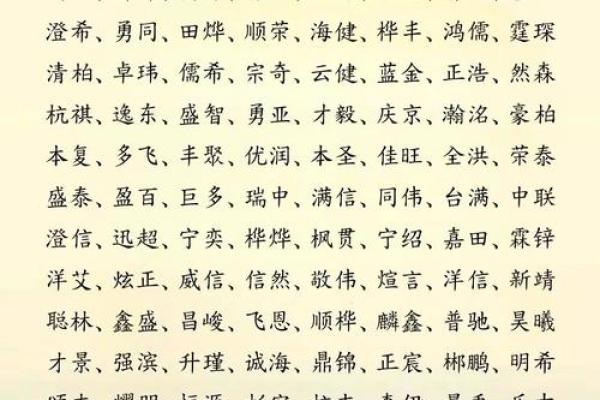 澄希、勇同、田烨、顺荣、海健、桦丰、鸿儒、霆琛
清柏、卓玮、儒希、宗奇、云健、蓝金、正浩、然森
杭祺、逸东、盛智、勇亚、才毅、庆京、瀚洺、豪柏
本复、多飞、丰聚、优润、本圣、佳旺、全洪、荣泰
盛泰、盈百、巨多、瑞中、满信、同伟、台满、中联
澄信、迅超、宁奕、桦烨、枫贯、宁绍、嘉田、霖锌
洋艾、炫正、威信、信然、敬伟、煊言、洋信、新靖
聪林、鑫盛、昌峻、飞恩、顺桦、麟鑫、普驰、昊曦
才景、强滨、升瑾、诚海、鼎锦、正宸、郴鹏、明希